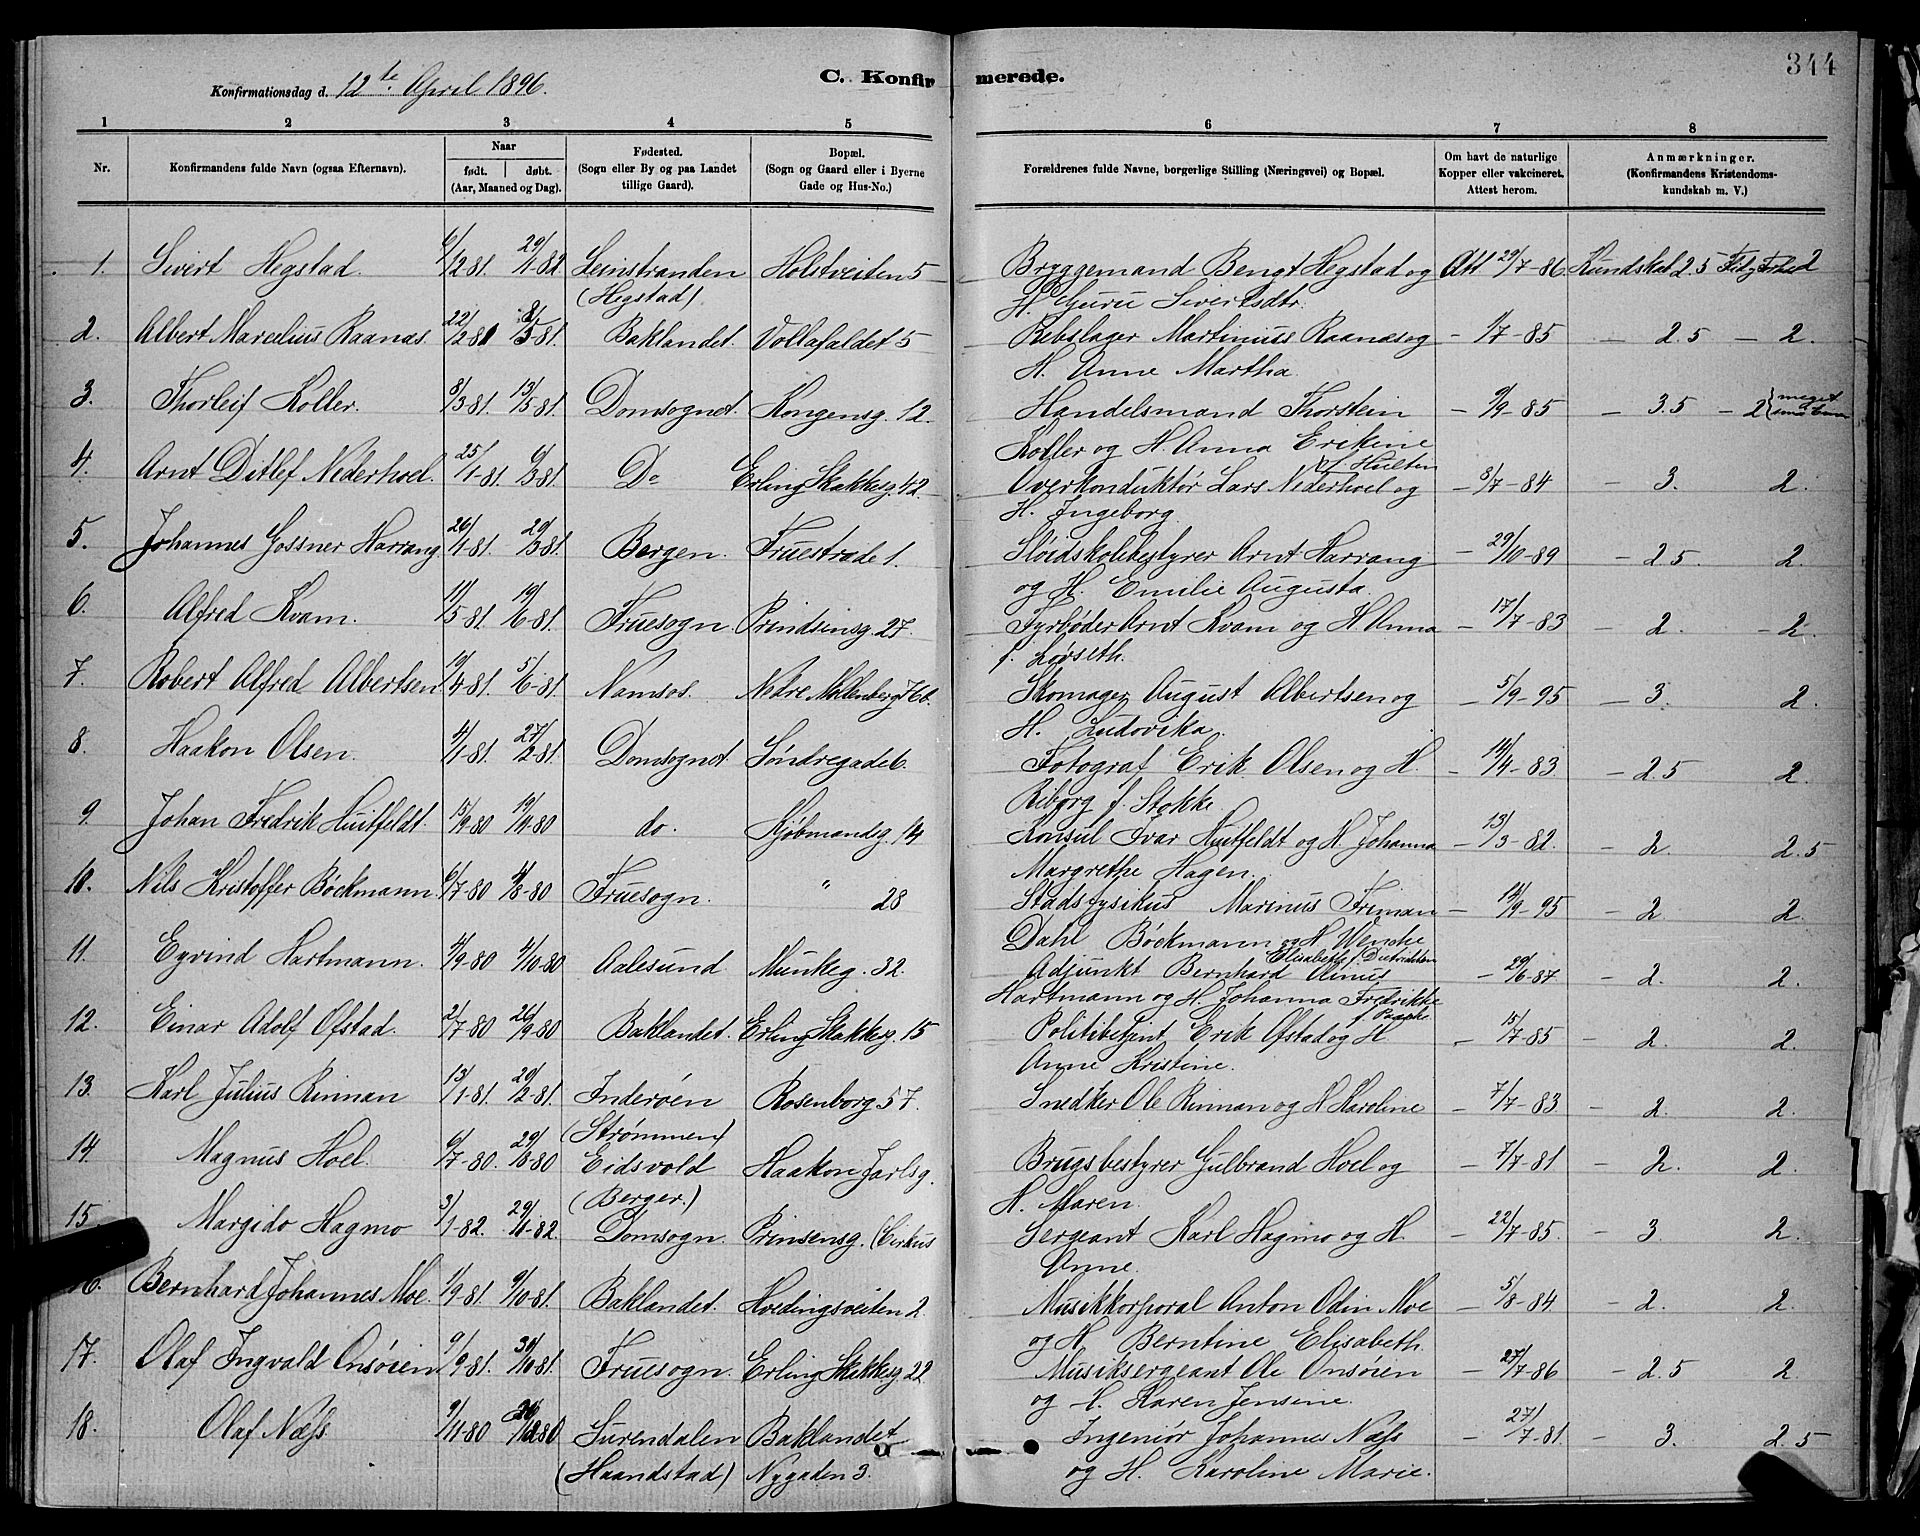 344
Konfirmationsdag d. 12te April 1896.
C. Konfirmerede.
1 2 3 4 5 6 7 8
Nr.
Konfirmandens fulde Navn (ogsaa Efternavn).
Naar
født. døbt.
(Aar, Maaned og Dag).
Fødested.
(Sogn eller By og paa Landet
tillige Gaard).
Bopæl.
(Sogn og Gaard eller i Byerne
Gade og Hus-No.)
Forældrenes fulde Navne, borgerlige Stilling (Næringsvei) og Bopæl.
Om havt de naturlige
Kopper eller vakcineret.
Attest herom.
Anmærkninger.
(Konfirmandens Kristendoms-
kundskab m. V.)
1. Sivert Hegstad. 6/12 81. 29/1-82 Leinstranden Holstveiten 5 Bryggemand Bengt Hegstad og Att 29/7-86 Kundskab 2.5 Flid 2
(Hegstad) H. Guru Sivertsdtr.
2. Albert Marcelius Raanæs. 22/2 81 8/5-81. Baklandet. Vollafaldet 5 Rebslager Martinius Raanæs og - 1/7-85 - 2.5 - 2.
H. Anne Martha.
3. Thorleif Koller. 8/3-81. 13/5-81. Domsognet. Kongensg. 12. Handelsmand Thorstein - 9/9-85 - 3.5 - 2 { meget
Koller og H. Anna Erikine
f. Hultin
4. Arnt Ditlef Nederhoel. 25/1-81. 6/3-81. Do Erling Skakkesg. 42. Overkonduktør Lars Nederhoel og - 8/7-84 - 3. 2.
H. Ingeborg.
5. Johannes Gossner Harrang 26/1-81. 20/3-81. Bergen. Fruestræde 1. Sløidskolebestyrer Arnt Harrang - 29/10-89 - 2.5. 2.
og H. Emilie Augusta.
6. Alfred Kvam. 11/5-81. 19/6-81. Fruesogn. Prindsinsg. 27. Fyrbøder Arnt Kvam og H. Anna - 17/7-83 - 2. - 2.
f. Løvseth.
7. Robert Alfred Albertsen 19/4-81. 5/6-81. Namsos. Nedre Møllenberg 76b. Skomager August Albertsen og - 5/9-95 - 3. 2.
H. Ludovika.
8. Haakon Olsen. 4/1-81. 27/2-81. Domsognet Søndregade 6. Fotograf Erik Olsen og H. - 14/4-83 - 2.5 2.
Riborg f. Stokke.
9. Johan Fredrik Huitfeldt. 15/9-80 19/11-80 do. Kjøbmandsg. 14 Konsul Ivar Huitfeldt og H. Johanna - 13/3-82. - 2. 2.5
Margrethe Hagen.
10. Nils Kristoffer Bøckmann. 6/7-80 4/8-80 Fruesogn. " 28 Stadsfysikus Marinus Friman - 14/9-95 - 2. 2.
Dahl Bøckmann og H. Wenche
Elisabeth f. Dietrichson
11. Eyvind Hartmann. 4/9-80 4/10-80 Aalesund. Munkeg. 32. Adjunkt Bernhard Olinus - 29/6-87. - 2. 2.
Hartmann og H. Johanna Fredrikke
12. Einar Adolf Ofstad. 2/7-80 26/9-80 Baklandet. Erling Skakkesg. 15 Politibetjent Erik Ofstad og H. - 15/7-85 - 2. 2.
Anne Kristine.
13. Karl Julius Rinnan 13/1-81. 20/2-81. Inderøen Rosenborg 57. Snedker Ole Rinnan og H. Karoline - 7/7-83 - 2. 2.
(Strømmen)
14. Magnus Hoel. 6/7-80. 29/8-80 Eidsvold Haakon Jarlsg. Brugsbestyrer Gulbrand Hoel og - 7/7-81 - 2. 2.
(Berger.) H. Maren.
15. Margido Hagmo 3/1-82. 29/1-82. Domsogn. Prinsensg. (Cirkus Sergeant Karl Hagmo og H. - 22/7-85. - 3. 2.
Anne.
16. Bernhard Johannes Moe. 1/9-81. 9/10-81. Baklandet. Hvedingsveiten 2. Musikkorporal Anton Odin Moe - 5/8-84 - 2. 2.
og H. Berntine Elisabeth.
17. Olaf Ingvald Onsøien 9/9-81. 30/10-81. Fruesogn. Erling Skakkesg. 22. Musiksergeant Ole Onsøien - 27/7-86 - 2.5 2.
og H. Karen Jensine.
18. Olaf Næss. 9/11-80 26/12 80 Surendalen Baklandet Ingeniør Johannes Næss - 27/7-81 - 3. 2.5
(Haandstad) Nygaden 3. og H. Karoline Marie.